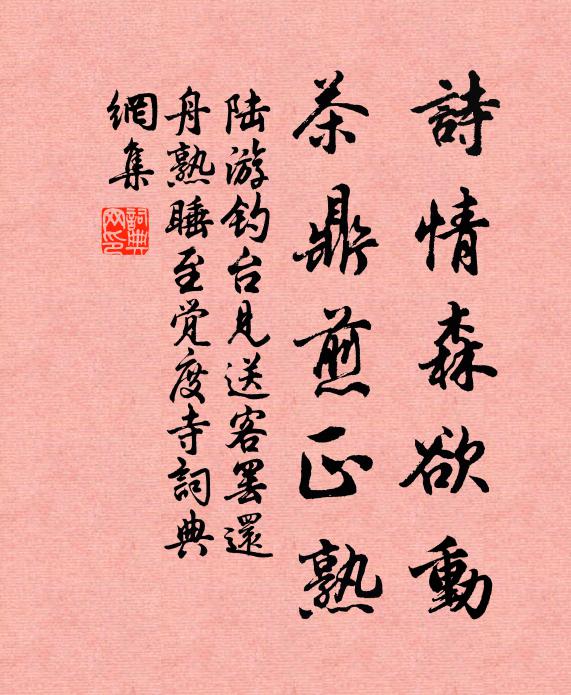 詩情森欲動
茶鼎煎正熟
陆游钓台見送客罢還
舟熟睡至觉度寺詞典
網集
詞典網印